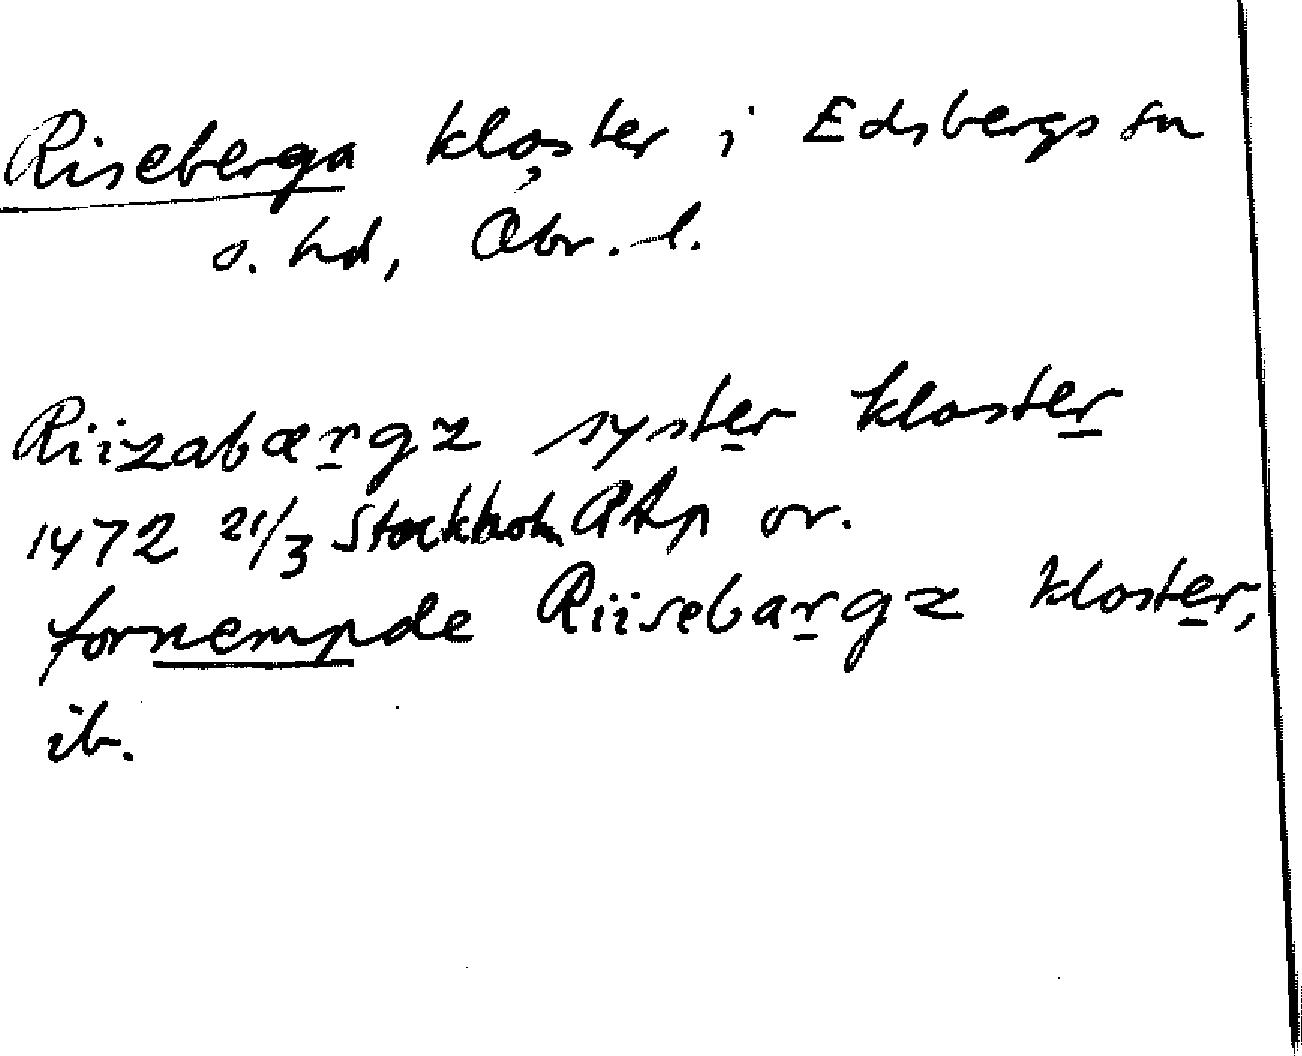 Riseberga kloster i Edsbergs sn
o. hd, Öbr. l.
Riizabærgz syster kloster
1472 21/3 Stockholm RAp or.
fornempde Riisebargz kloster,
ib.